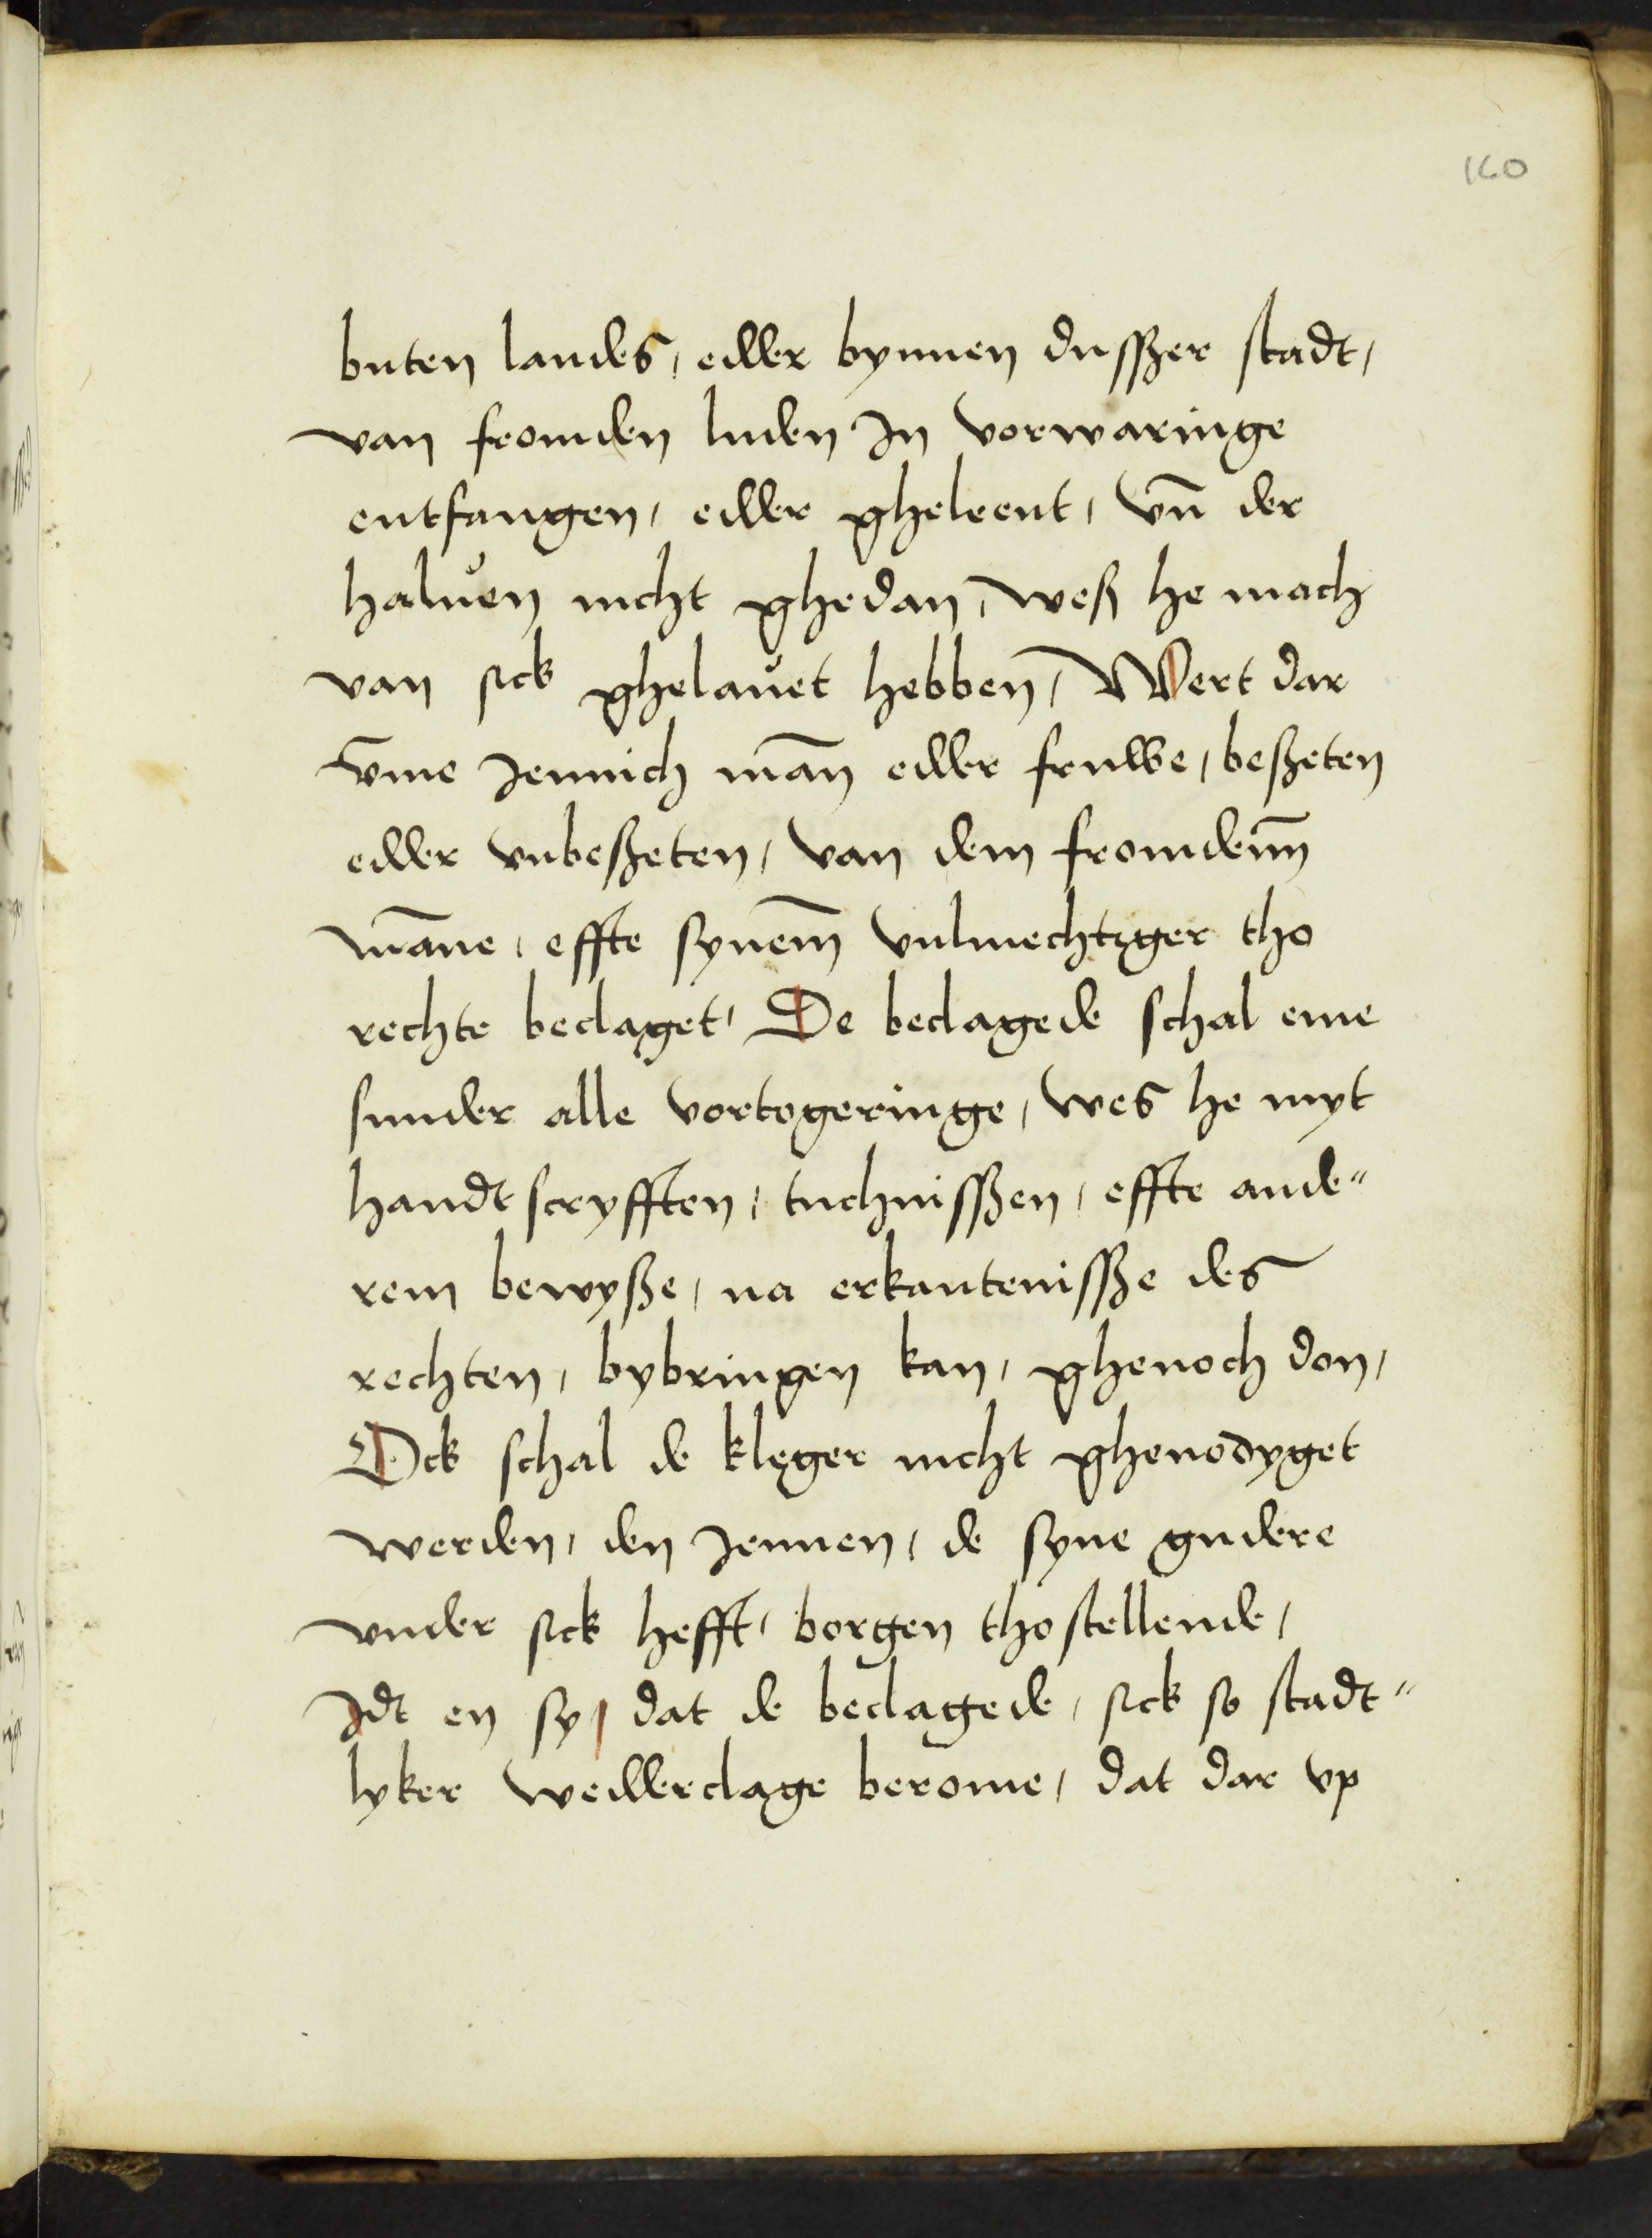 160
buten landes, edder bynnen dusszer stadt,
van fromden luden In vorwaringe
entfangen, edder gheleent, vn̄ der
haluen nicht ghedan, weß he mach
van sick ghelauet hebben, Wert dar
v̄me Jennich man̄ edder fruwe, beßeten
edder vnbeßeten, van dem fromdenn̄
man̄e, effte synem̄ vulmechtiger tho
rechte beclaget, De beclagede schal eme
sunder alle vortogeringe, wes he myt
handtscryfften, tuchnisszen, effte ande"
rem bewyße, na erkantenissze des
rechten, bybringen kan, ghenoch don,
Ock schal de kleger nicht ghenodyget
werden, den Jennen, de syne gudere
vnder sick hefft, borgen tho stellende,
Idt en sy, dat de beclagede, sick so stadt"
lyker wedderclage berome, dat dar vp